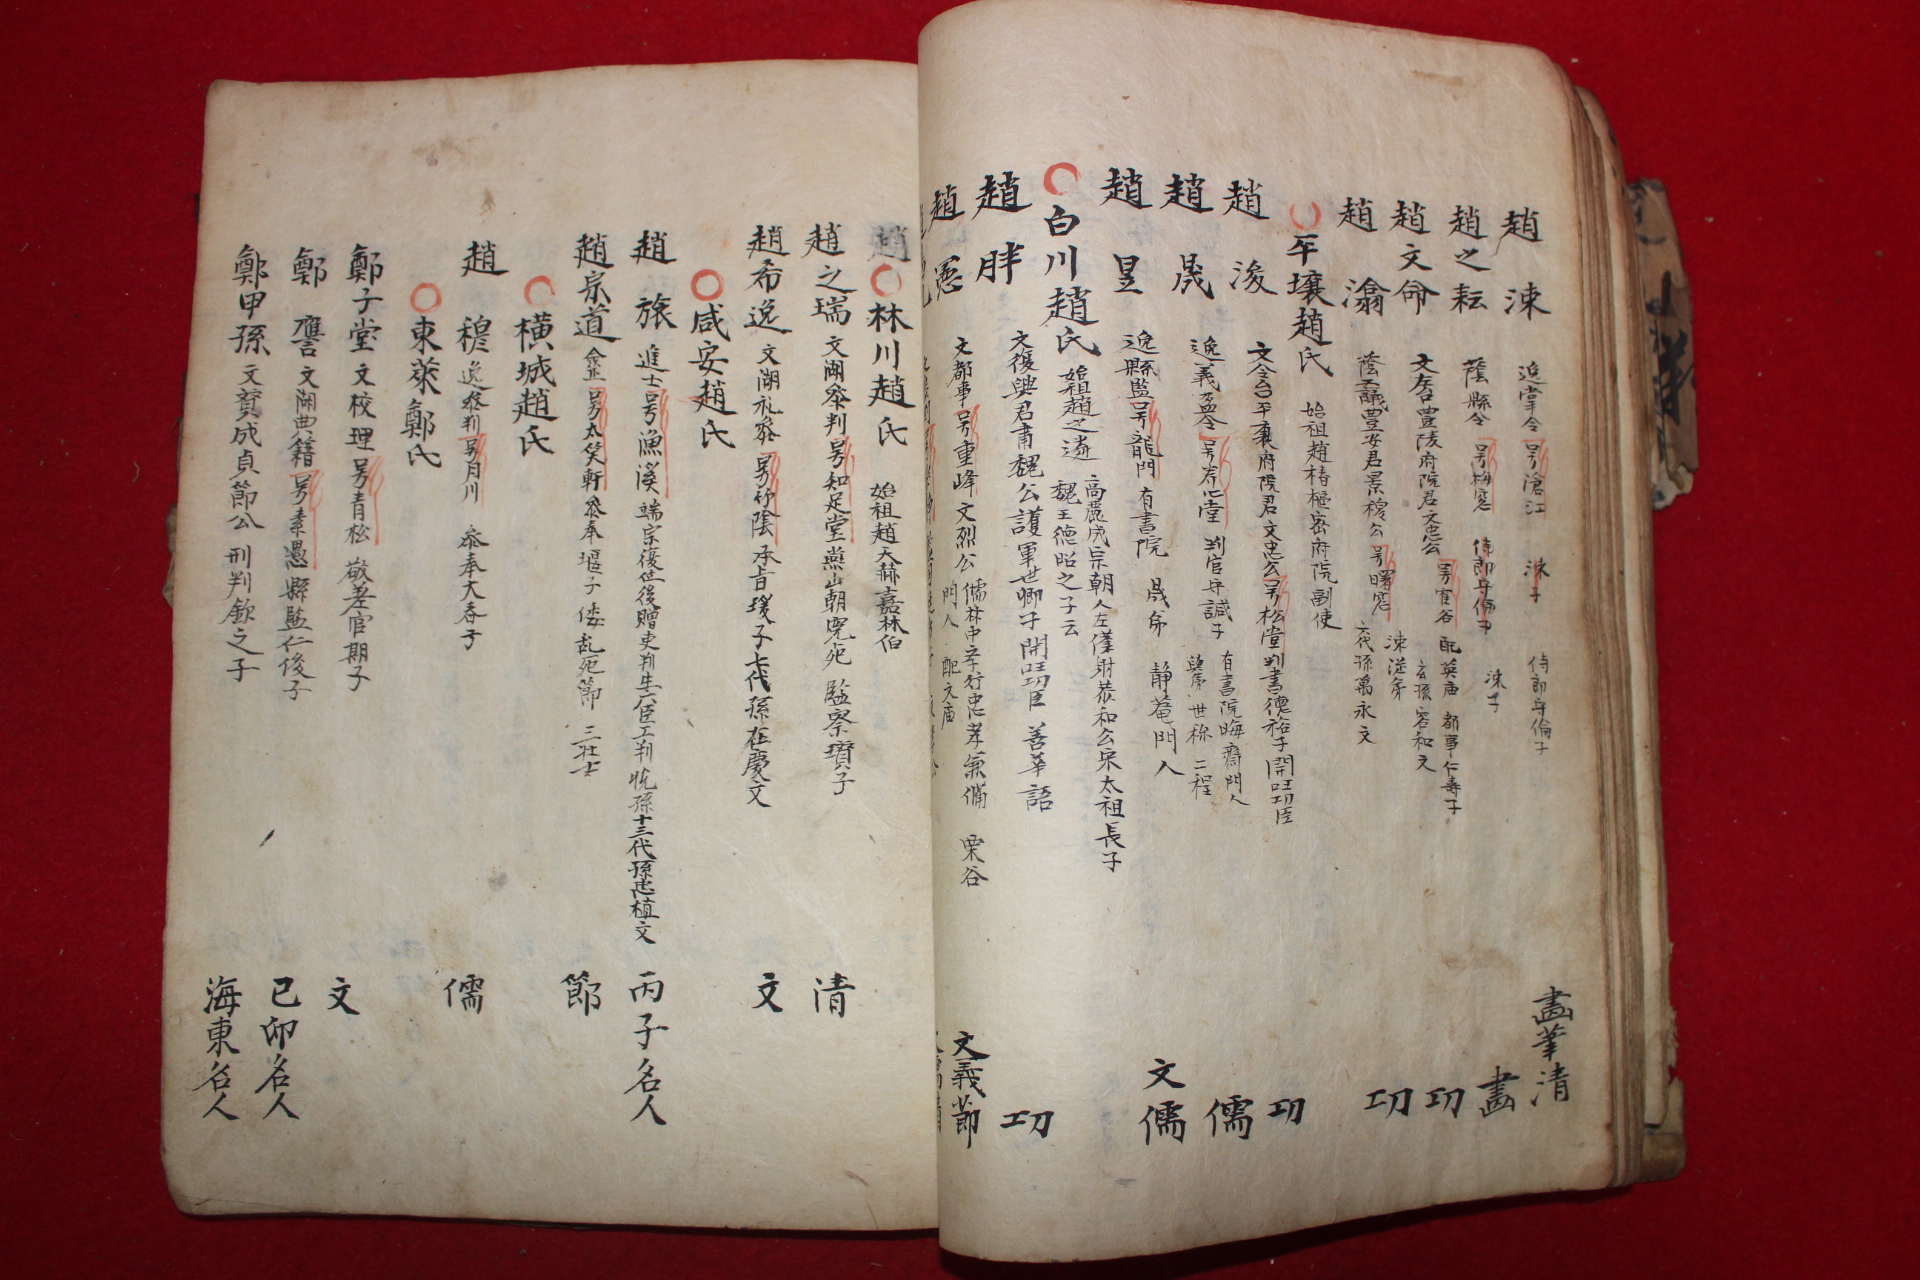 趙涑 逸掌令 号滄江 侍郎守倫子 畵筆清
趙之耘 蔭縣令 号梅窓 涑子 畵
趙文命 文 豊陵府院君文忠公 号 配英庙 都事仁壽子 功
趙潝 蔭 豊安君景穆公 号曙窓 涑從弟 功
平壤趙氏 始祖趙椿樞密府院副使
趙浚 文令台平壤府院君文忠公号松堂判書德裕子開国功臣 功
趙晟 逸義盈令 号养心堂 判官守諴子 有書院晦齋門人 儒
趙昱 逸縣監号龍門 有書院 晟弟 静菴門人 文儒
白川趙氏 始祖趙之遴 高麗成宗朝人左僕射恭和公宋太祖長子魏王德昭之子云
趙胖 文復興君肅魏公護軍世卿子開国功臣 善華語 功
趙憲 文都事号重峰文烈公 儒林中孝行忠孝兼備 栗谷門人 配文庙 文義節
林川趙氏 始祖趙天赫嘉林伯
趙之瑞 文湖參判号知足堂燕山朝冤死 監察瓚子 清
趙希逸 文湖礼參 号竹陰 承旨瑗子七代孫在慶文 文
咸安趙氏
趙旅 進士号漁溪 端宗復位後贈吏判生六臣工判悅孫十三代孫忠植文 丙子名人
趙宗道 僉正 号大笑軒參奉堰子 倭乱死節 三壯士 節
横城趙氏
趙穆 逸參判号月川 參奉大春子 儒
東萊鄭氏
鄭子堂 文校理号青松 敬差官期子 文
鄭譍 文湖典籍号素愚縣監仁俊子 己卯名人
鄭甲孫 文贊成貞節公 刑判欽之子 海東名人